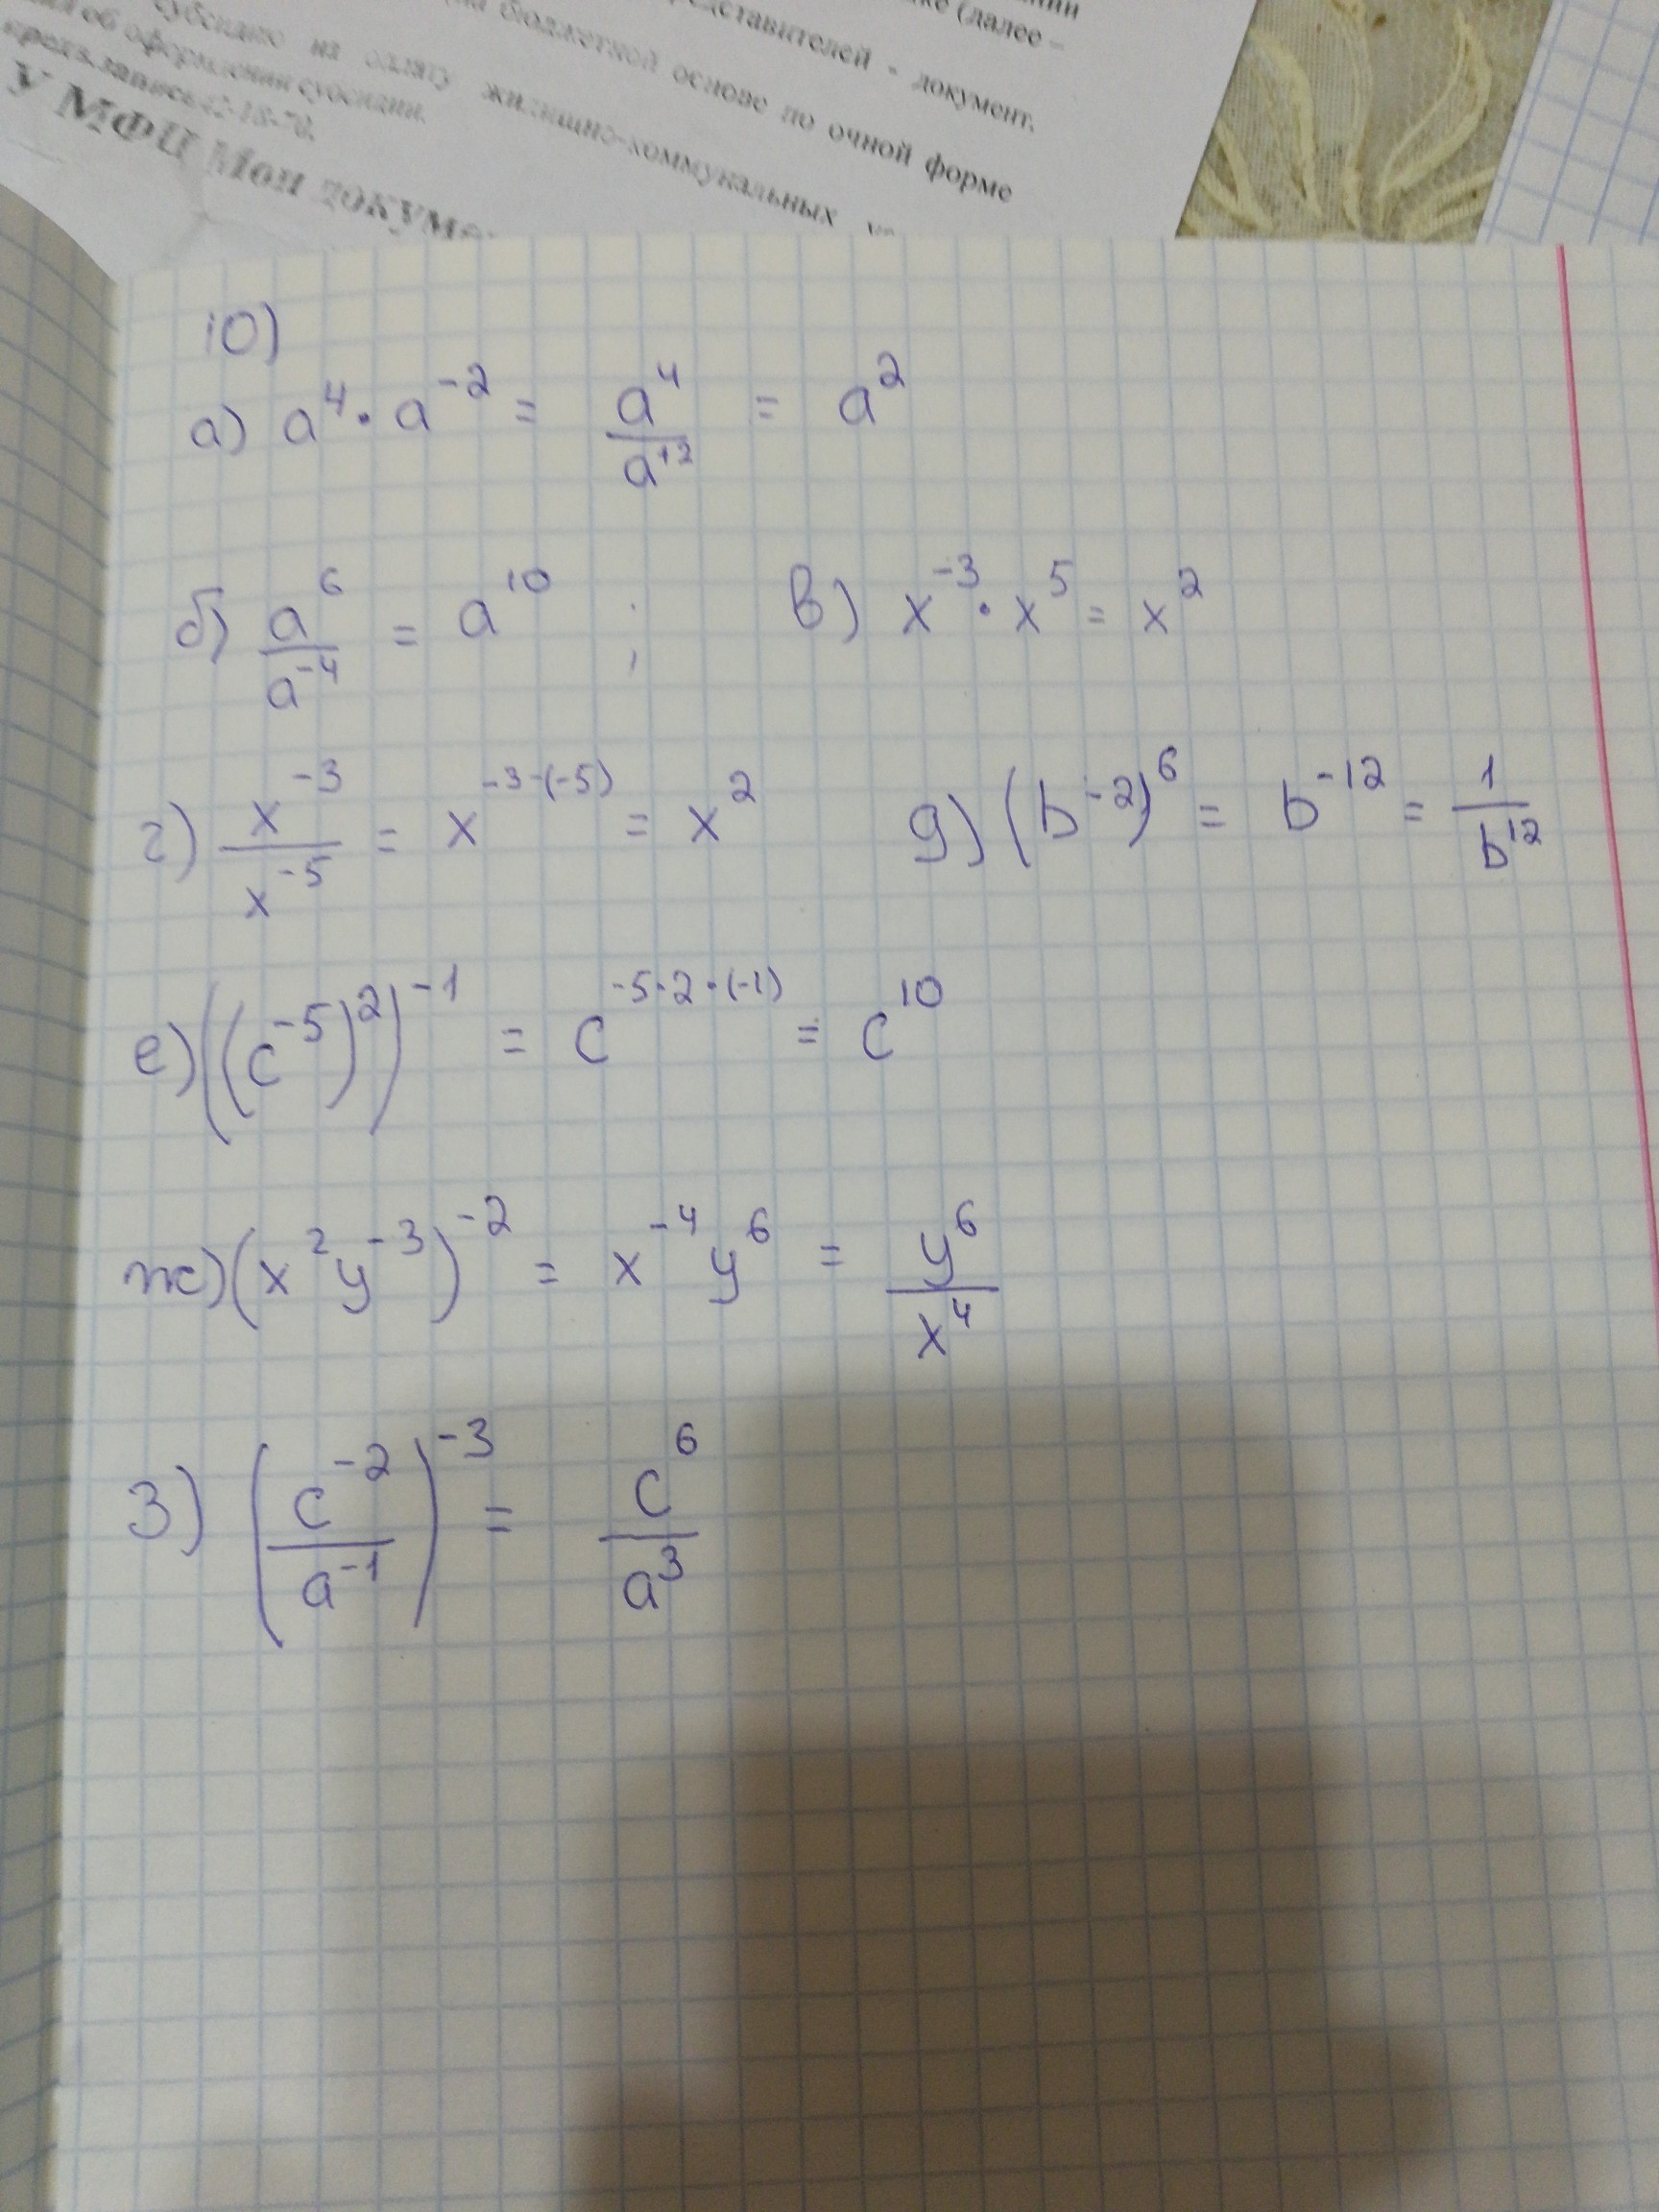 нии
ке (далее –
редставителей - документ,
бюджетной основе по очной форме
субсидию на оплату жилищно-коммунальных
об оформлении субсидии.
предв.запись 42-18-70.
У МФЦ Мои докуме
10)
а) a⁴ · a⁻² = a⁴/a⁺² = a²
б) a⁶/a⁻⁴ = a¹⁰ ; в) x⁻³ · x⁵ = x²
г) x⁻³/x⁻⁵ = x⁻³⁻⁽⁻⁵⁾ = x² д) (b⁻²)⁶ = b⁻¹² = 1/b¹²
е) ((c⁻⁵)²)⁻¹ = c^(-5·2·(-1)) = c¹⁰
ж) (x²y⁻³)⁻² = x⁻⁴y⁶ = y⁶/x⁴
з) (c⁻²/a⁻¹)⁻³ = c⁶/a³